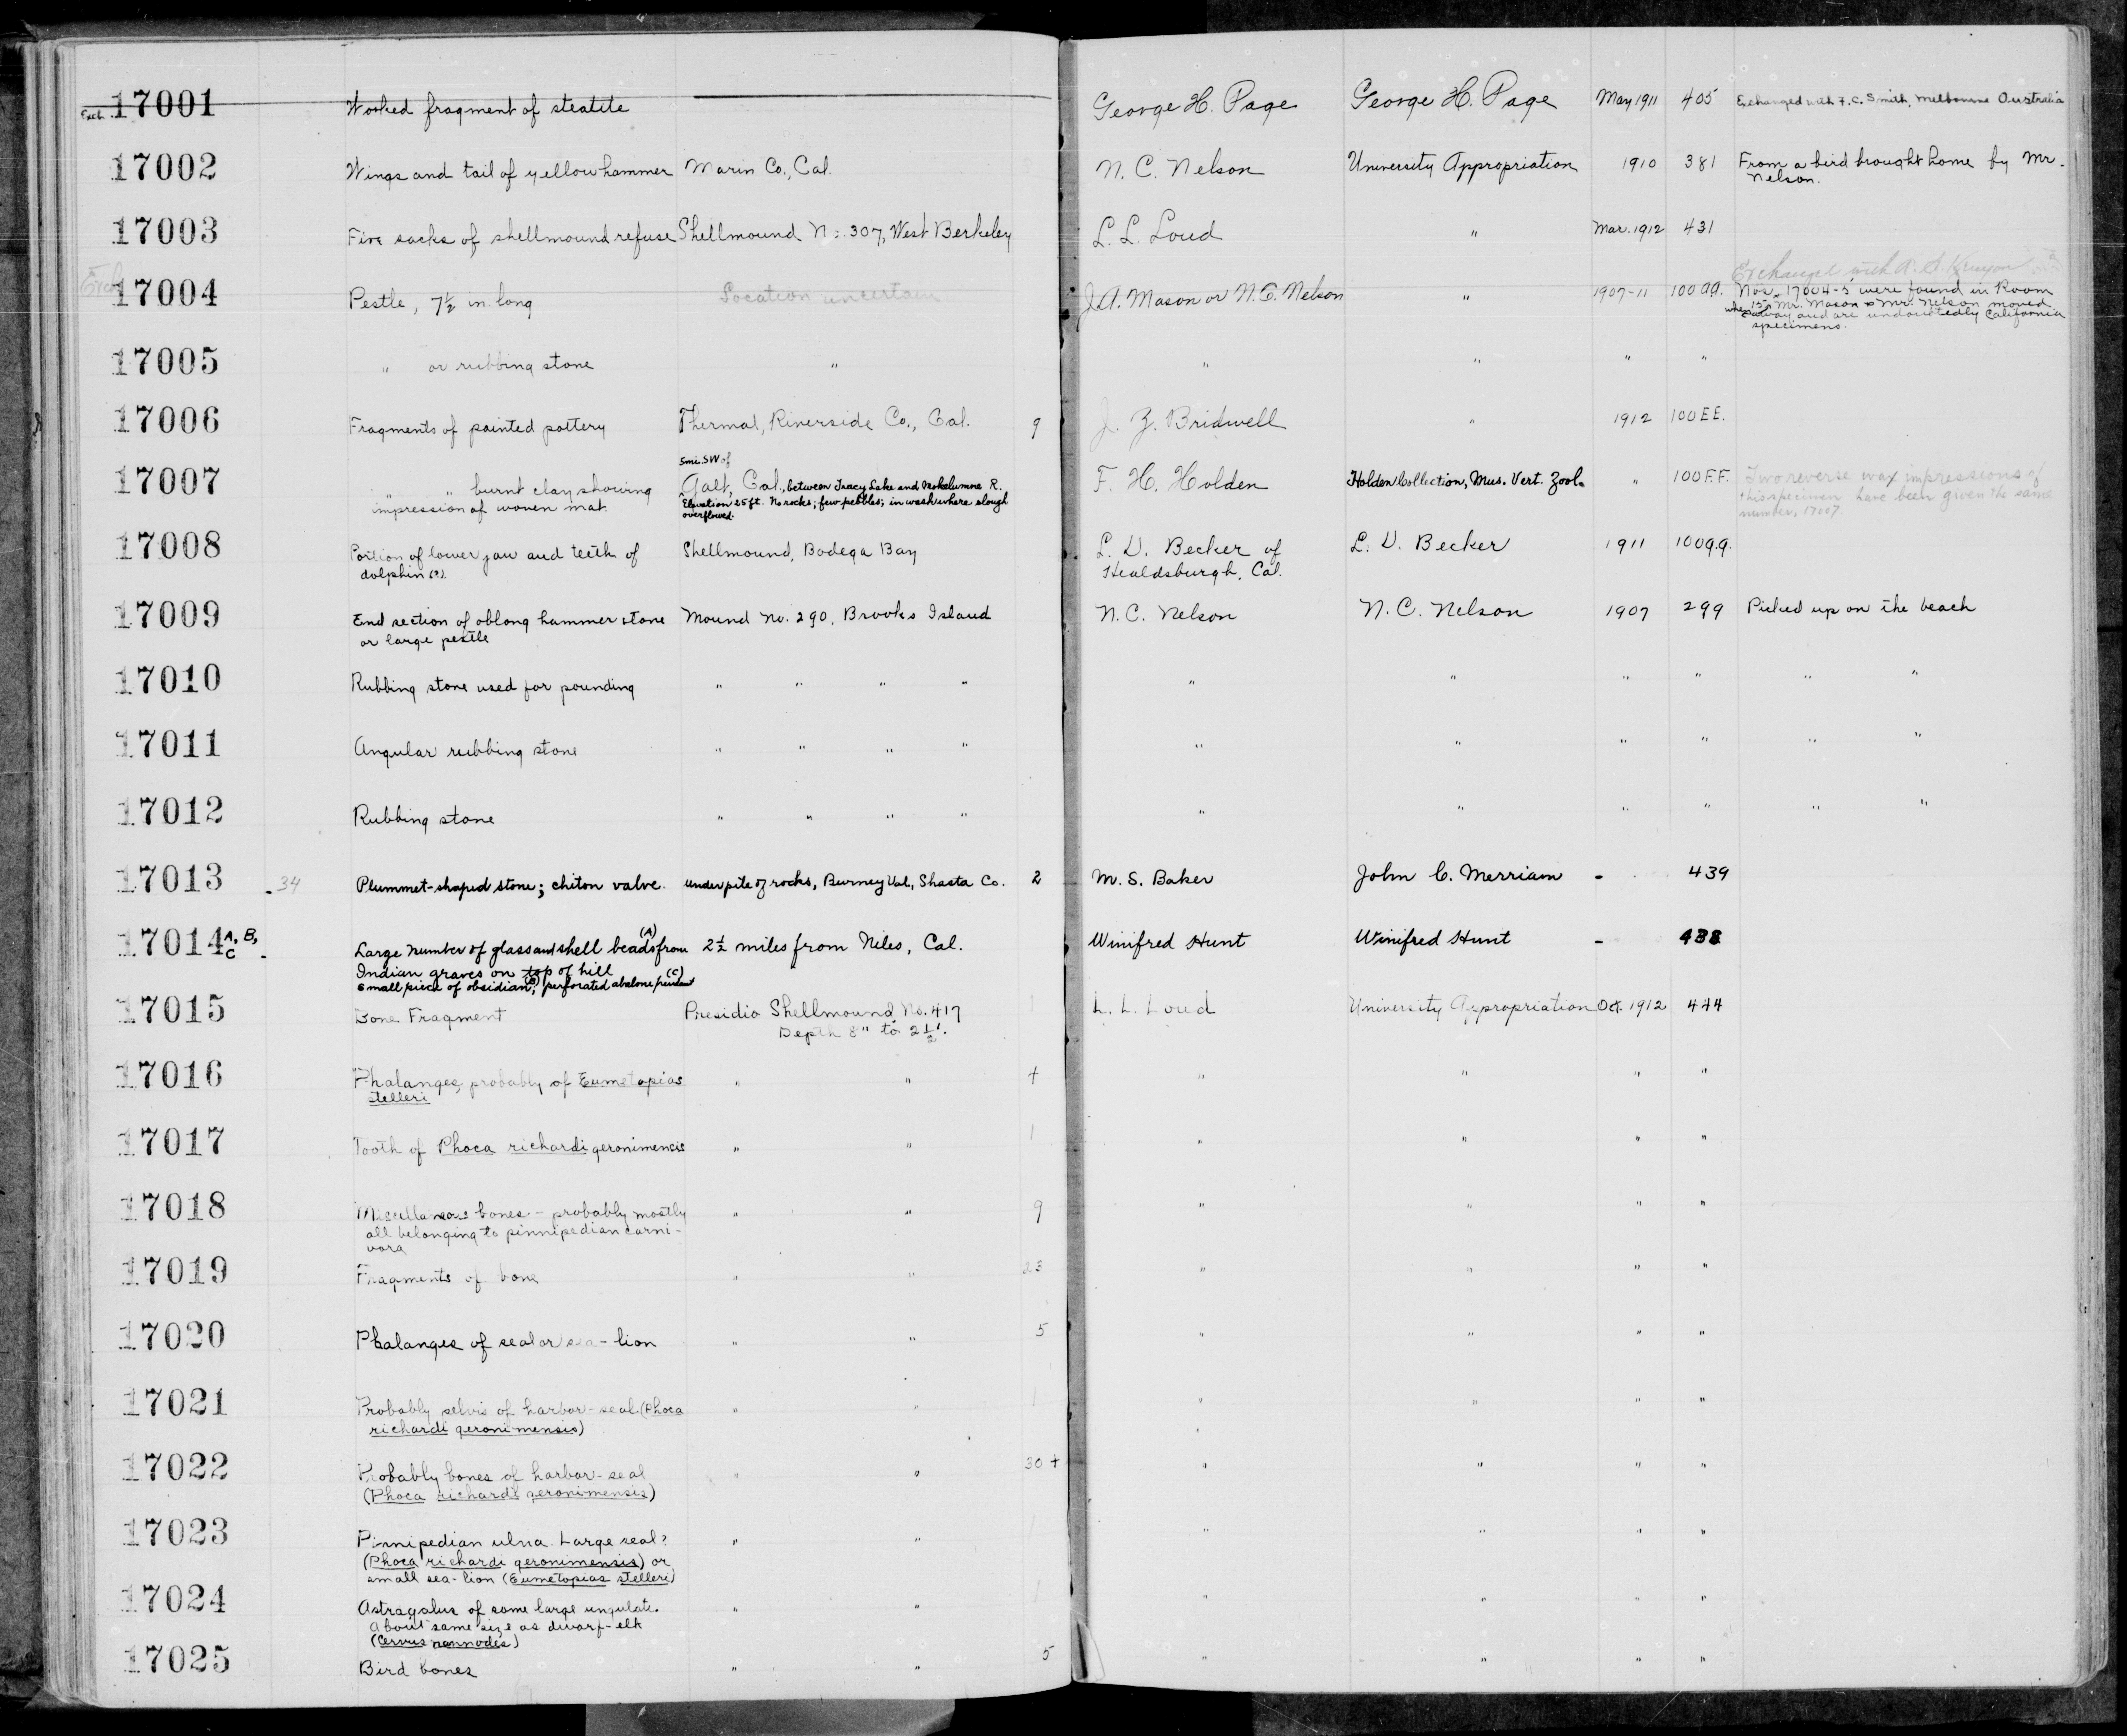 Exch. 17001 Worked fragment of steatite George H. Page George H. Page May 1911 405 Exchanged with F. C. Smith, Melbourne Australia
17002 Wings and tail of yellowhammer Marin Co., Cal. N. C. Nelson University Appropriation 1910 381 From a bird brought home by Mr.
Nelson.
17003 Five sacks of shellmound refuse Shellmound No. 307, West Berkeley L. L. Loud " Mar. 1912 431
Exchange with A. S.
17004 Pestle, 7½ in. long Location uncertain J.A. Mason or N.C. Nelson " 1907-11 100 Nos. 17004-5 were found in Room
15 when Mr. Mason & Mr. Nelson moved
away and are undoubtedly California
specimens.
17005 " or rubbing stone " " " " "
17006 Fragments of painted pottery Thermal, Riverside Co., Cal. 9 J. Z. Bridwell " 1912 100EE.
5mi. SW of
17007 " " burnt clay showing Galt, Cal., between Tracy Lake and Mokelumne R. F. H. Holden Holden Collection, Mus. Vert. Zool. " 100F.F. Two reverse wax impressions of
impression of woven mat. Elevation 25 ft. No rocks; few pebbles; in wash where slough this specimen have been given the same
overflowed. number, 17007
17008 Portion of lower jaw and teeth of Shellmound, Bodega Bay L. D. Becker of L. D. Becker 1911 100
dolphin (?). Healdsburgh, Cal.
17009 End section of oblong hammer stone Mound No. 290, Brooks Island N.C. Nelson N.C. Nelson 1907 299 Picked up on the beach
or large pestle
17010 Rubbing stone used for pounding " " " " " " " " " "
17011 Angular rubbing stone " " " " " " " " " "
17012 Rubbing stone " " " " " " " " " "
17013 34 Plummet-shaped stone; chiton valve. under pile of rocks, Burney Val., Shasta Co. 2 M. S. Baker John C. Merriam - 439
17014 A, B, C Large number of glass and shell beads (A) from 2½ miles from Niles, Cal. Winifred Hunt Winifred Hunt - 438
Indian graves on top of hill
small piece of obsidian (B); perforated abalone pendant (C)
17015 Bone Fragment Presidio Shellmound No. 417 1 L. L. Loud University Appropriation Oct. 1912 444
Depth 8" to 2½'.
17016 Phalanges, probably of Eumetopias " " 4 " " " "
stelleri
17017 Tooth of Phoca richardi geronimensis " " 1 " " " "
17018 Miscellaneous bones - probably mostly " " 9 " " " "
all belonging to pinnipedian carni-
vora
17019 Fragments of bone " " 23 " " " "
17020 Phalanges of seal or sea-lion " " 5 " " " "
17021 Probably pelvis of harbor-seal (Phoca " " 1 " " " "
richardi geronimensis)
17022 Probably bones of harbor-seal " " 30+ " " " "
(Phoca richardi geronimensis)
17023 Pinnipedian ulna. Large seal? " " 1 " " " "
(Phoca richardi geronimensis) or
small sea-lion (Eumetopias stelleri)
17024 Astragalus of some large ungulate. " " 1 " " " "
About same size as dwarf-elk
(Cervus nannodes)
17025 Bird bones " " 5 " " " "